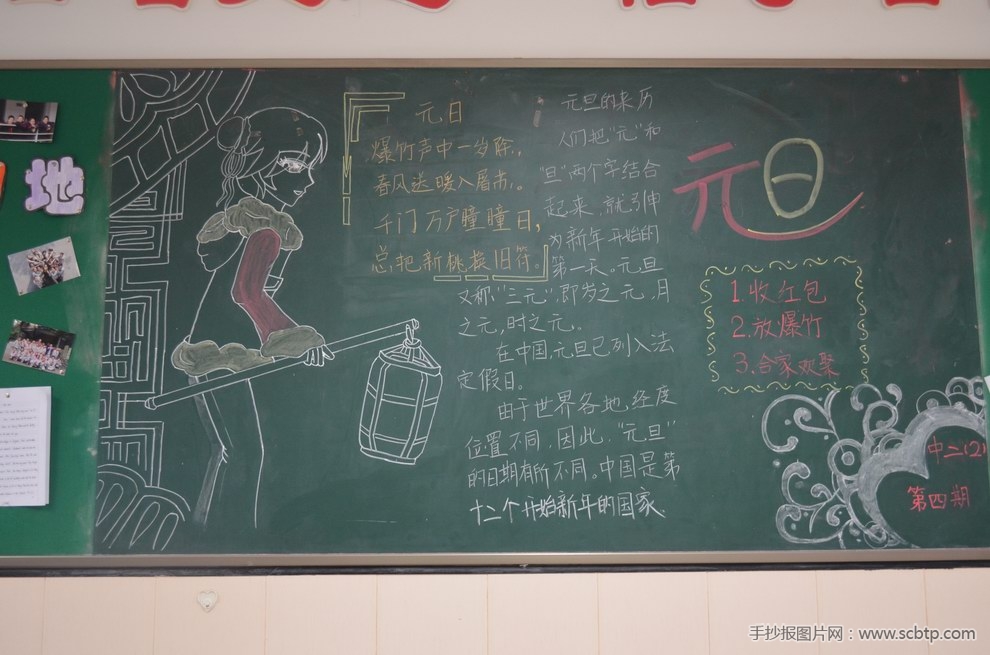 地
元日
爆竹声中一岁除,
春风送暖入屠苏。
千门万户曈曈日,
总把新桃换旧符。
元旦的来历
人们把“元”和
“旦”两个字结合
起来,就引伸
为新年开始的
第一天。元旦
又称“三元”,即岁之元,月
之元,时之元。
在中国,元旦已列入法
定假日。
由于世界各地,经度
位置不同,因此,“元旦”
的日期有所不同。中国是第
十二个开始新年的国家.
元旦
1.收红包
2.放爆竹
3.合家欢聚
中二(2)
第四期
手抄报图片网：www.scbtp.com